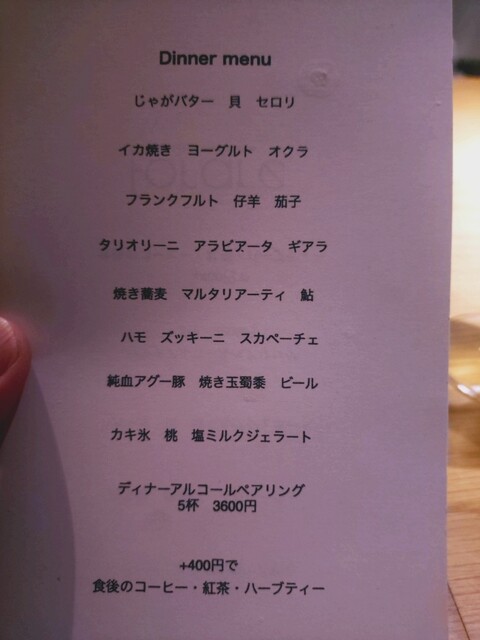 Dinner menu
じゃがバター　貝　セロリ
イカ焼き　ヨーグルト　オクラ
フランクフルト　仔羊　茄子
タリオリーニ　アラビアータ　ギアラ
焼き蕎麦　マルタリアーティ　鮎
ハモ　ズッキーニ　スカペーチェ
純血アグー豚　焼き玉蜀黍　ビール
カキ氷　桃　塩ミルクジェラート
ディナーアルコールペアリング
5杯　3600円
+400円で
食後のコーヒー・紅茶・ハーブティー